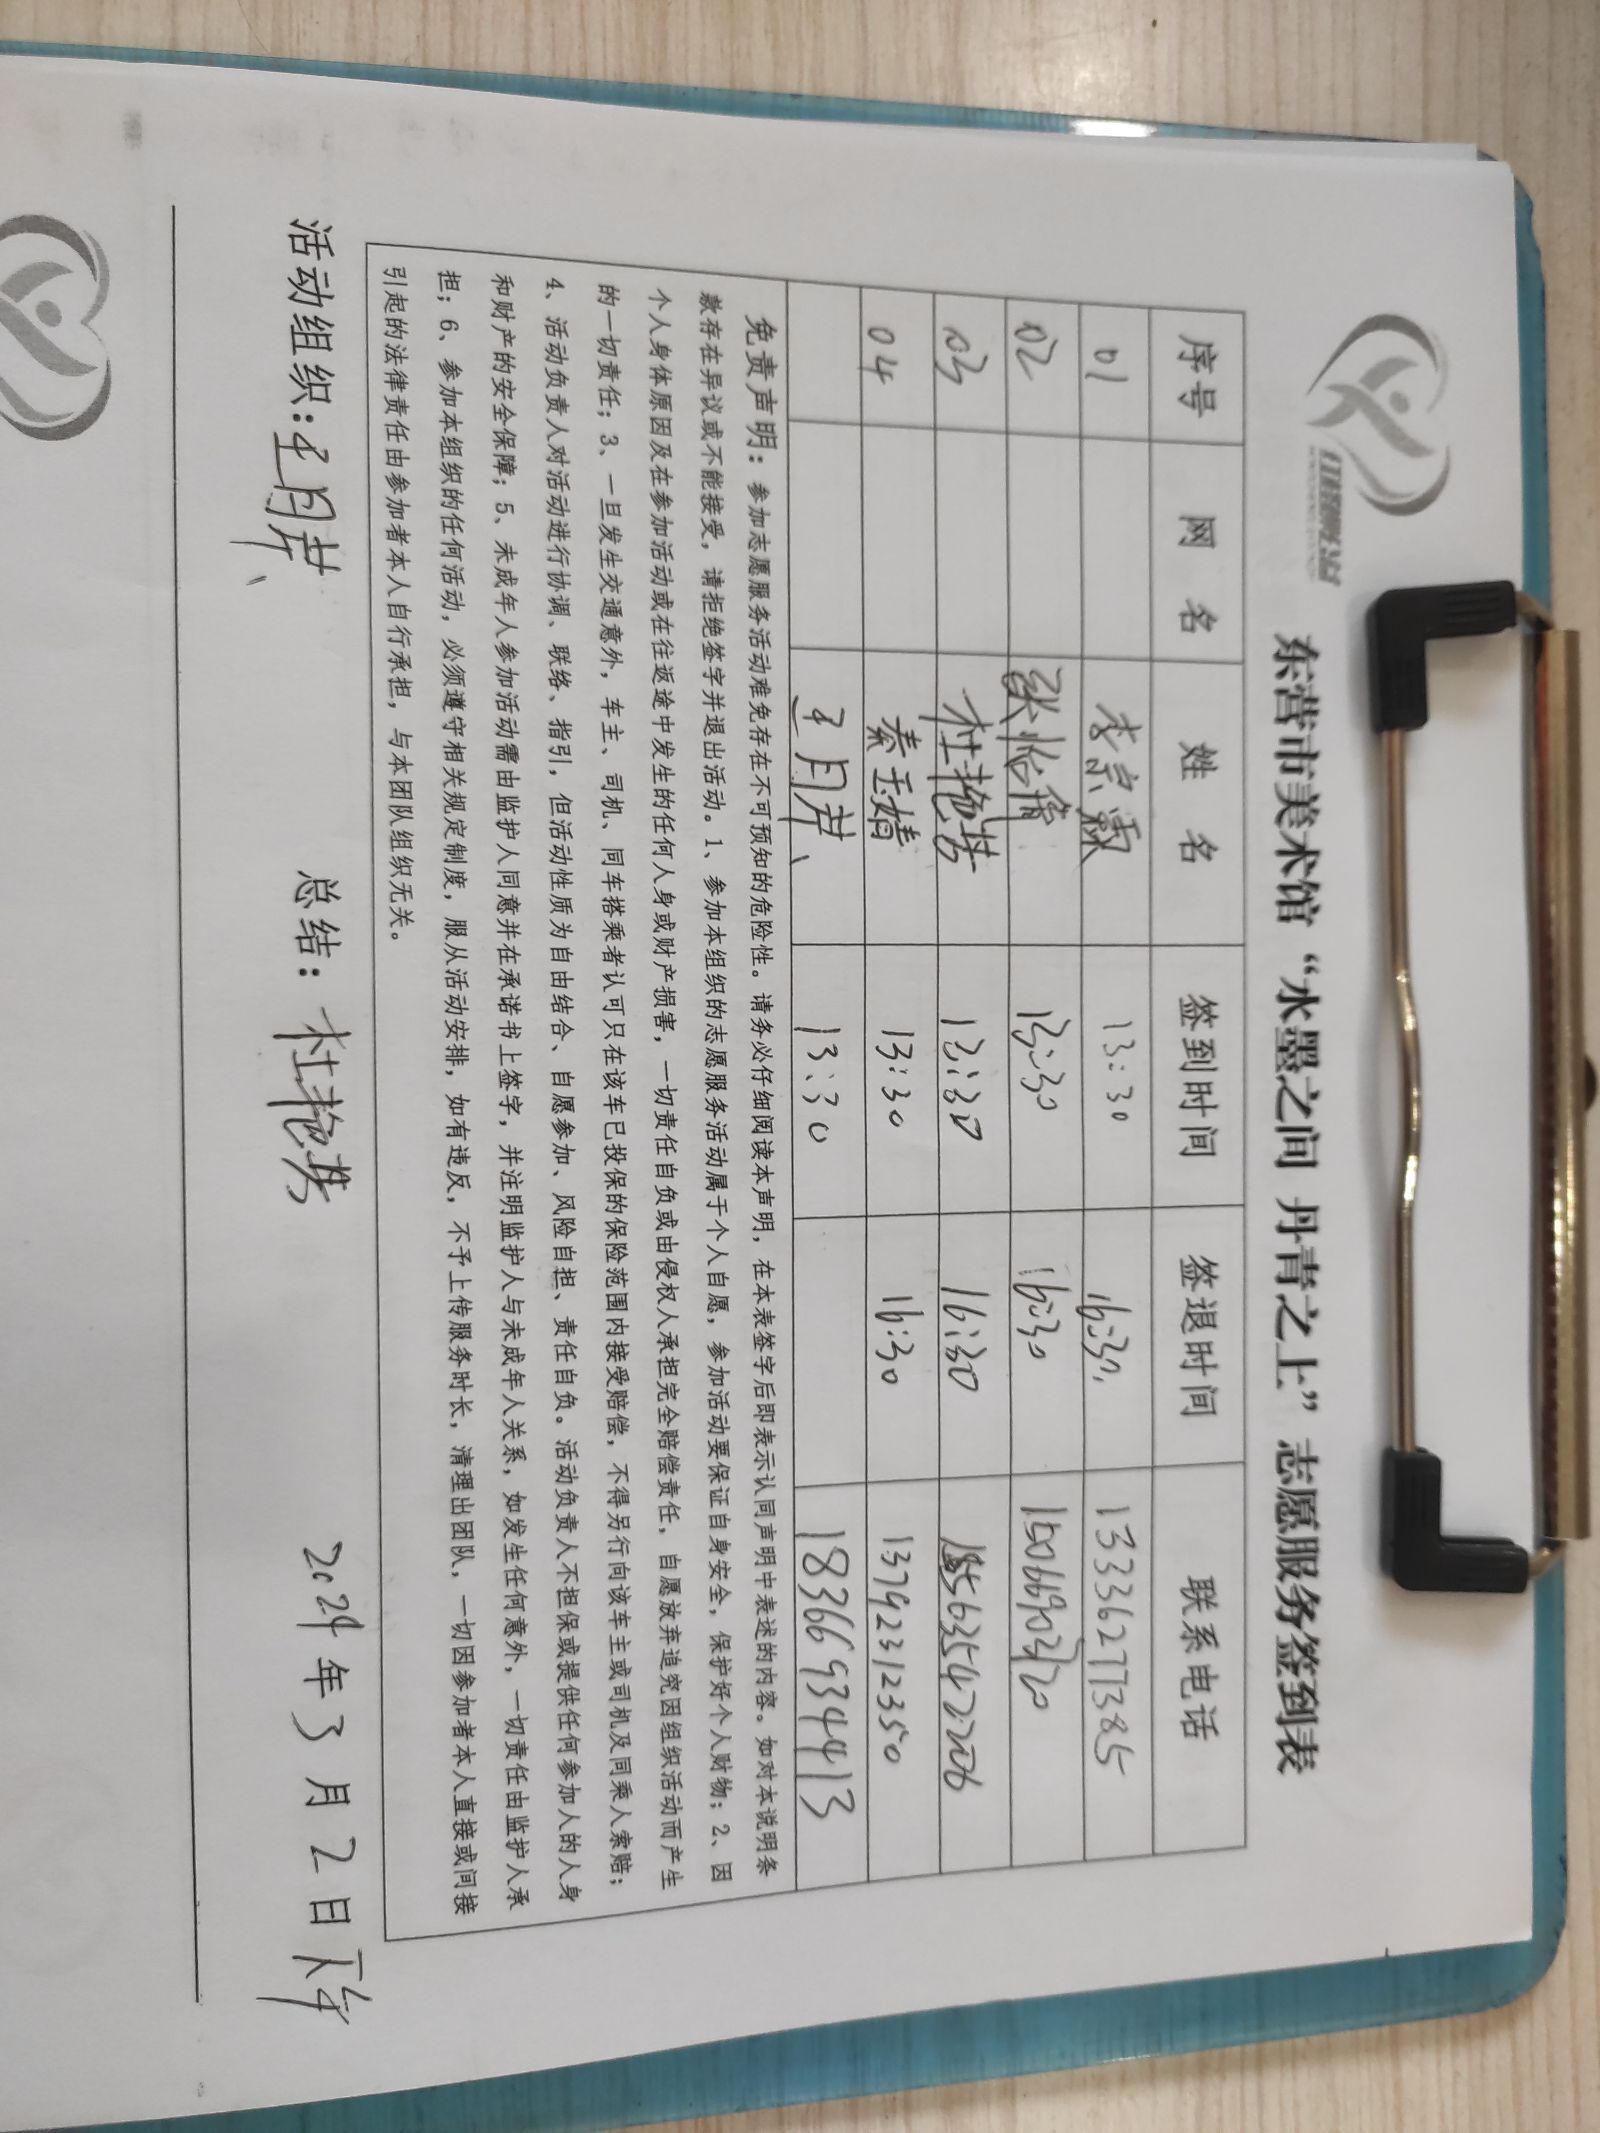 东营市美术馆“水墨之间 丹青之上”志愿服务签到表
序号 网 名 姓 名 签到时间 签退时间 联系电话
01 李宗霖 13:30 16:30 13336277385
02 张怡 13:30 16:30
03 杜艳 13:30 16:30
04 秦玉婧 13:30 16:30 13792312350
王月芹 13:30 18366934413
免责声明：参加志愿服务活动难免存在不可预知的危险性。请务必仔细阅读本声明，在本表签字后即表示认同声明中表述的内容。如对本说明条
款存在异议或不能接受，请拒绝签字并退出活动。1、参加本组织的志愿服务活动属于个人自愿，参加活动要保证自身安全，保护好个人财物；2、因
个人身体原因及在参加活动或在往返途中发生的任何人身或财产损害，一切责任自负或由侵权人承担完全赔偿责任，自愿放弃追究因组织活动而产生
的一切责任；3、一旦发生交通意外，车主、司机、同车搭乘者认可只在该车已投保的保险范围内接受赔偿，不得另行向该车主或司机及同乘人索赔；
4、活动负责人对活动进行协调、联络、指引，但活动性质为自由结合、自愿参加、风险自担、责任自负。活动负责人不担保或提供任何参加人的人身
和财产的安全保障；5、未成年人参加活动需由监护人同意并在承诺书上签字，并注明监护人与未成年人关系，如发生任何意外，一切责任由监护人承
担；6、参加本组织的任何活动，必须遵守相关规定制度，服从活动安排，如有违反，不予上传服务时长，清理出团队，一切因参加者本人直接或间接
引起的法律责任由参加者本人自行承担，与本团队组织无关。
活动组织：王月芹 总结：杜艳 2024年3月2日下午